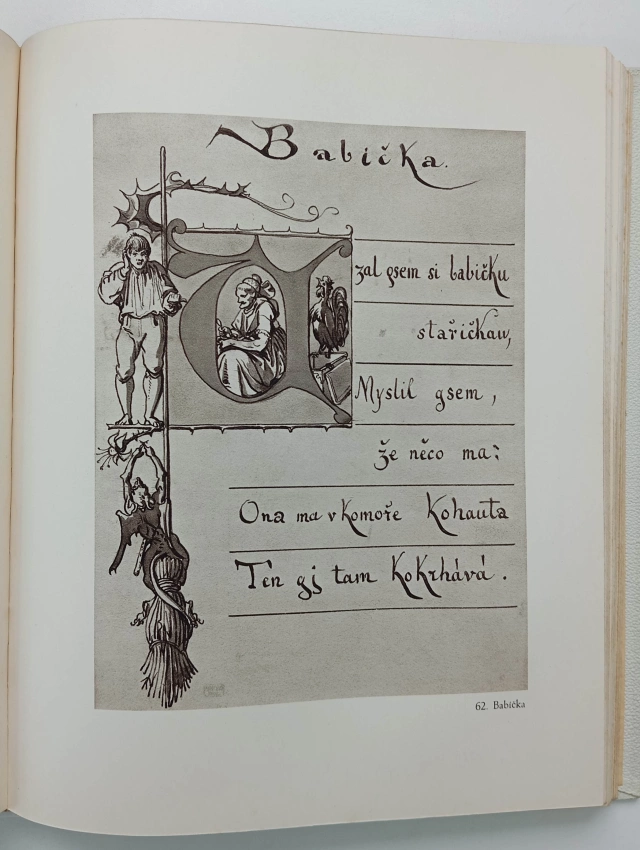 Babička.
Uzal gsem si babičku
stařičkau,
Myslil gsem,
že něco ma:
Ona ma v komoře Kohauta
Ten gj tam KoKrhává.
62. Babička